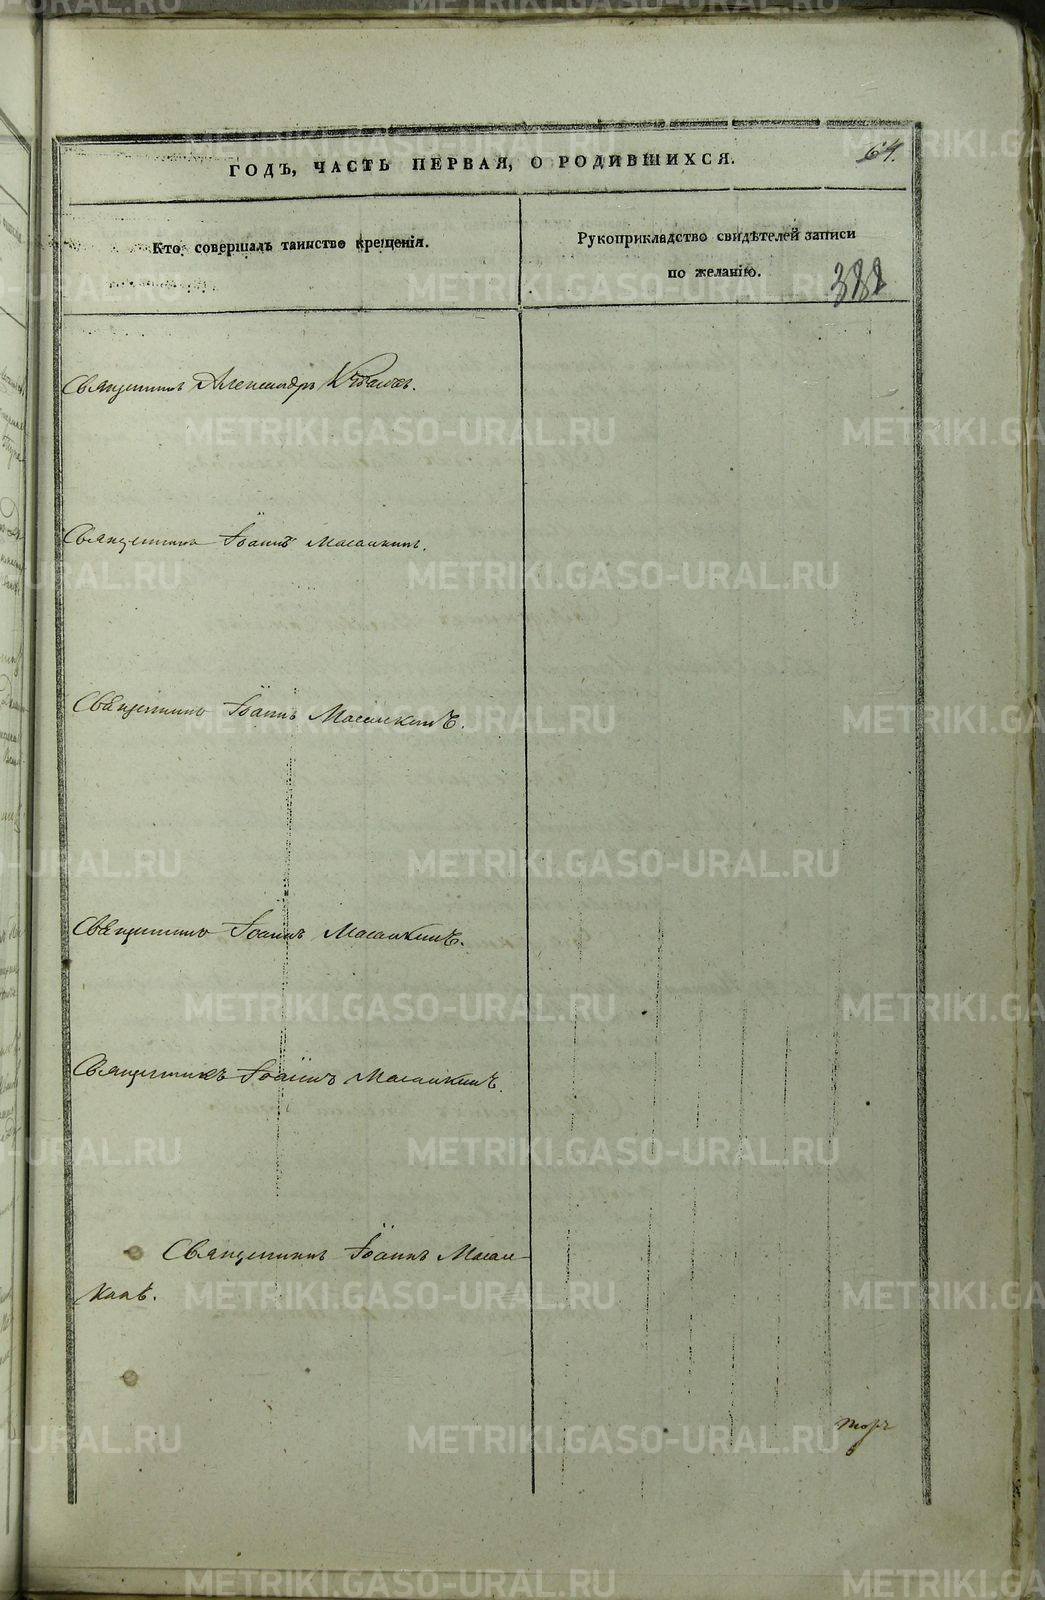 64.
ГОДЪ, ЧАСТЬ ПЕРВАЯ, О РОДИВШИХСЯ.
Кто совершалъ таинство крещенія.
Рукоприкладство свидѣтелей записи
по желанію.
388
Священникъ Александръ
Священникъ Іоаннъ Масалкинъ.
Священникъ Іоаннъ Масалкинъ.
Священникъ Іоаннъ Масалкинъ.
Священникъ Іоаннъ Масалкинъ.
Священникъ Іоаннъ Масал-
кинъ.
METRIKI.GASO-URAL.RU